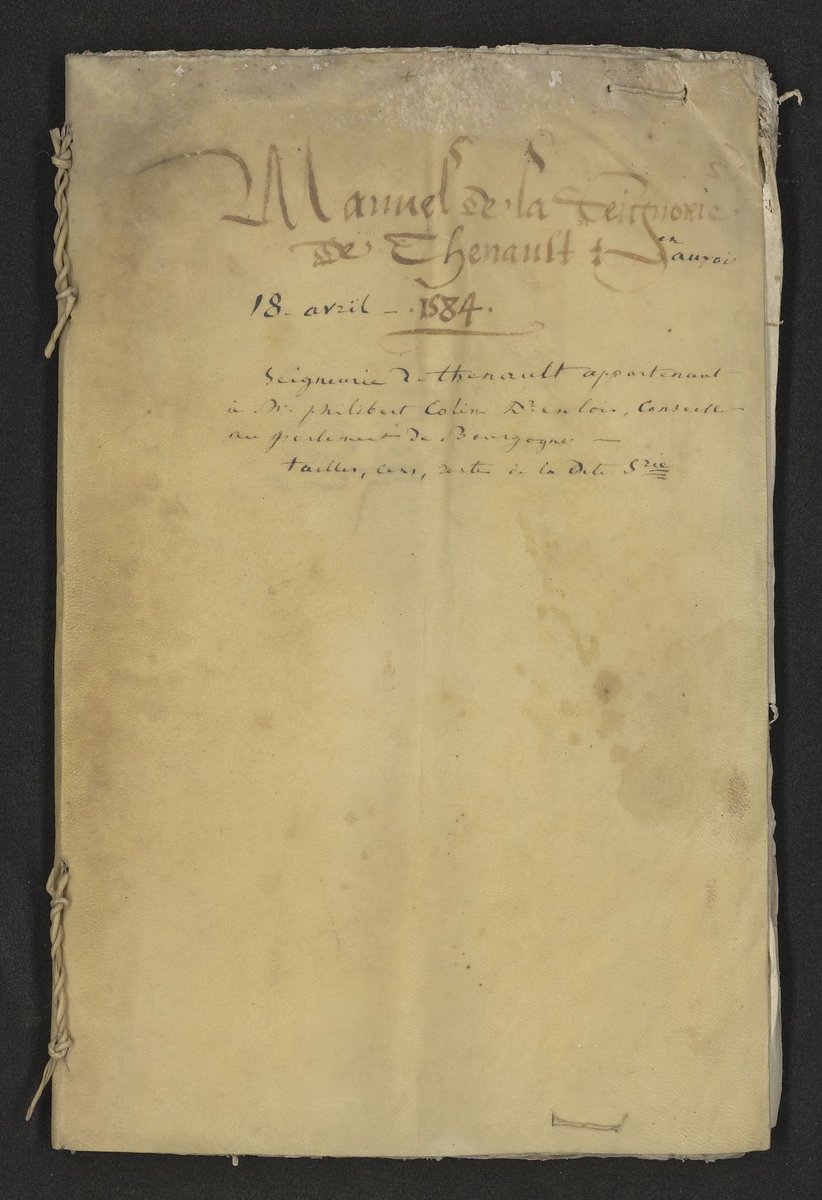 Manuel de la Seignorie
de Thenault en auxois
18. avril - .1584.
Seigneurie de thenault appartenant
à Mr. philibert Colin Dr. en loix, Conseiller
au parlement de Bourgogne —
tailles, cens, rentes de la dite Srie